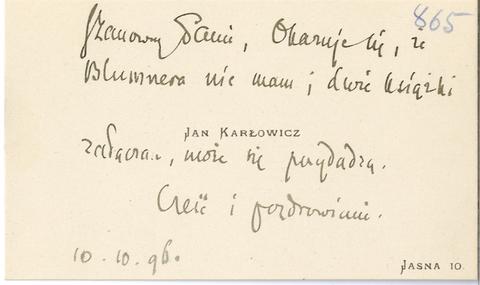 865
Szanowny Panie, Okazuje się, że
Blumnera nie mam; dwie książki
JAN KARŁOWICZ
załączam, może się przydadzą.
Cześć i pozdrowienie.
10.10.96.
JASNA 10.